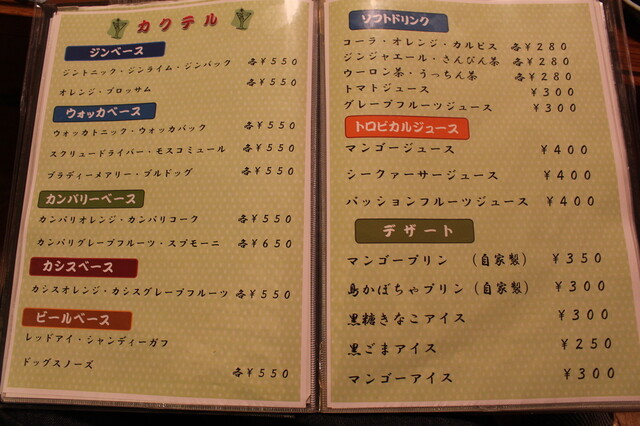 カクテル
ジンベース
ジントニック・ジンライム・ジンバック 各￥550
オレンジ・ブロッサム 各￥550
ウォッカベース
ウォッカトニック・ウォッカバック 各￥550
スクリュードライバー・モスコミュール 各￥550
ブラディーメアリー・ブルドッグ 各￥550
カンパリーベース
カンパリオレンジ・カンパリコーク 各￥550
カンパリグレープフルーツ・スプモーニ 各￥650
カシスベース
カシスオレンジ・カシスグレープフルーツ 各￥550
ビールベース
レッドアイ・シャンディーガフ
ドッグスノーズ 各￥550
ソフトドリンク
コーラ・オレンジ・カルピス 各￥280
ジンジャエール・さんぴん茶 各￥280
ウーロン茶・うっちん茶 各￥280
トマトジュース ￥300
グレープフルーツジュース ￥300
トロピカルジュース
マンゴージュース ￥400
シークァーサージュース ￥400
パッションフルーツジュース ￥400
デザート
マンゴープリン （自家製） ￥350
島かぼちゃプリン（自家製） ￥300
黒糖きなこアイス ￥300
黒ごまアイス ￥250
マンゴーアイス ￥300